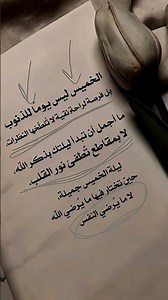 الخميس ليس يوما للذنوب
بل فرصة لراحة نقية لا تُطفئها النظرات
ما اجمل أن تبدأ ليلتك بذكر الله،
لا بمقاطع تُطفئ نور القلب.
ليلة الخميس جميلة،
حين تختار فيها ما يُرضي الله
لا ما يرضي النفس